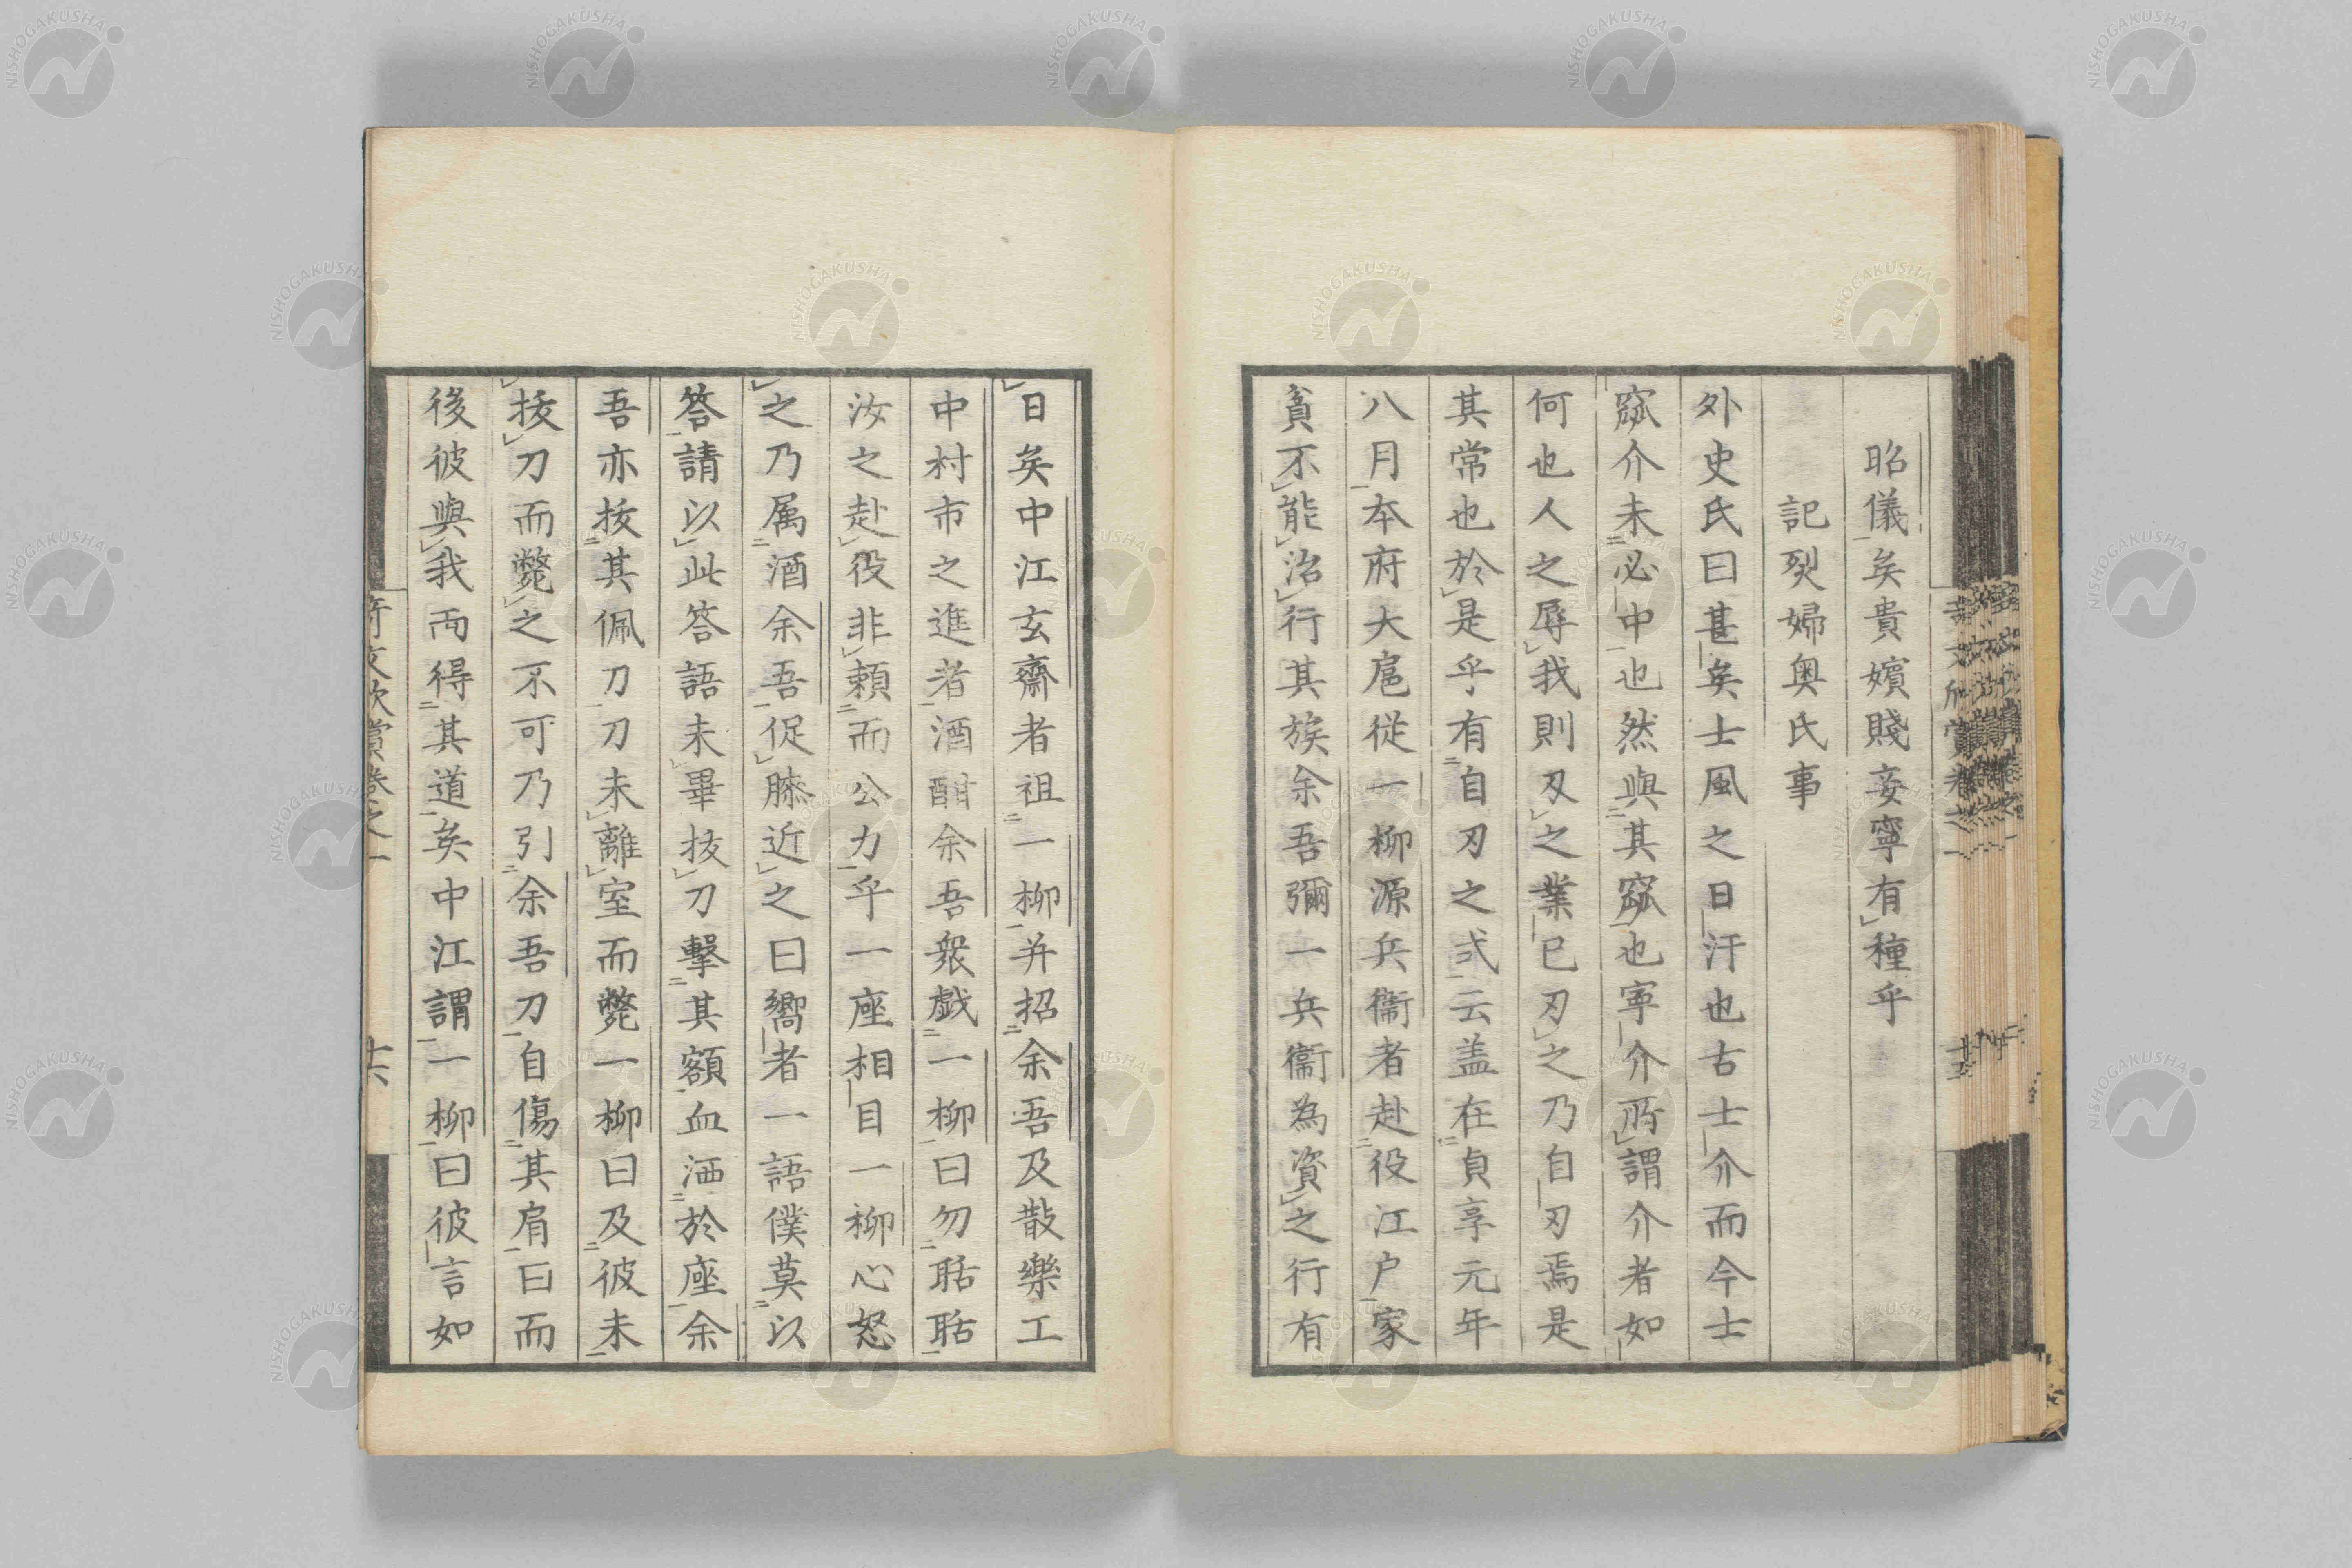 昭儀矣貴嬪賤妾寧有種乎
記烈婦奥氏事
外史氏曰甚矣士風之日汙也古士介而今士
窳介未必中也然與其窳也寧介所謂介者如
何也人之辱我則刄之業已刃之乃自刃焉是
其常也於是乎有自刃之弍云盖在貞享元年
八月本府大扈從一柳源兵衞者赴役江戸家
貧不能治行其族余吾彌一兵衞為資之行有
日矣中江玄齋者祖一柳并招余吾及散樂工
中村市之進者酒酣余吾衆戯一柳曰勿聒聒
汝之赴役非頼而公力乎一座相目一柳心怒
之乃属酒余吾促膝近之曰嚮者一語僕莫以
答請以此答語未畢抜刀擊其額血洒於座余
吾亦抜其佩刀刀未離室而斃一柳曰及彼未
抜刀而斃之不可乃引余吾刀自傷其肩曰而
後彼與我両得其道矣中江謂一柳曰彼言如
奇文欣賞卷之一
十六
NISHOGAKUSHA